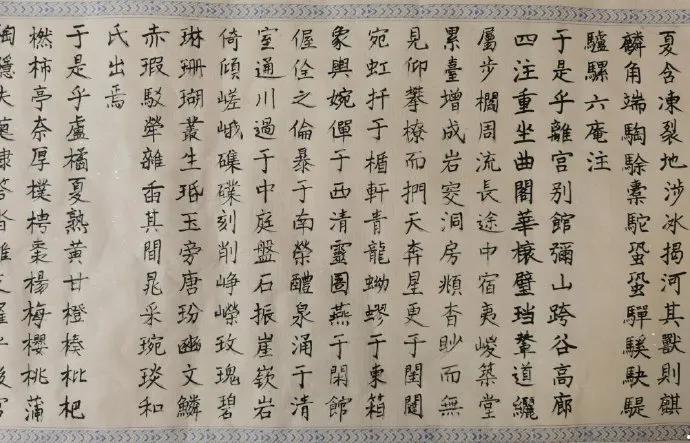 夏含凍裂地涉冰揭河其獸則麒
麟角端騊駼橐駝蛩蛩驒騱駃騠
驢騾六庵注
于是乎離宫别館彌山跨谷高廊
四注重坐曲閣華榱璧珰輦道纚
屬步櫩周流長途中宿夷嵕築堂
累臺增成岩窔洞房頫杳眇而無
見仰攀橑而捫天奔星更于閨闥
宛虹扦于楯軒青龍蚴蟉于東箱
象輿婉僤于西清靈圄燕于閑館
偓佺之倫暴于南榮醴泉涌于清
室通川過于中庭盤石振崖嶔岩
倚傾嵯峨磼礏刻削崢嶸玫瑰碧
琳珊瑚叢生珉玉旁唐玢豳文鱗
赤瑕駁犖雜臿其間晁采琬琰和
氏出焉
于是乎盧橘夏熟黄甘橙楱枇杷
橪柿亭奈厚樸梬棗楊梅櫻桃蒲